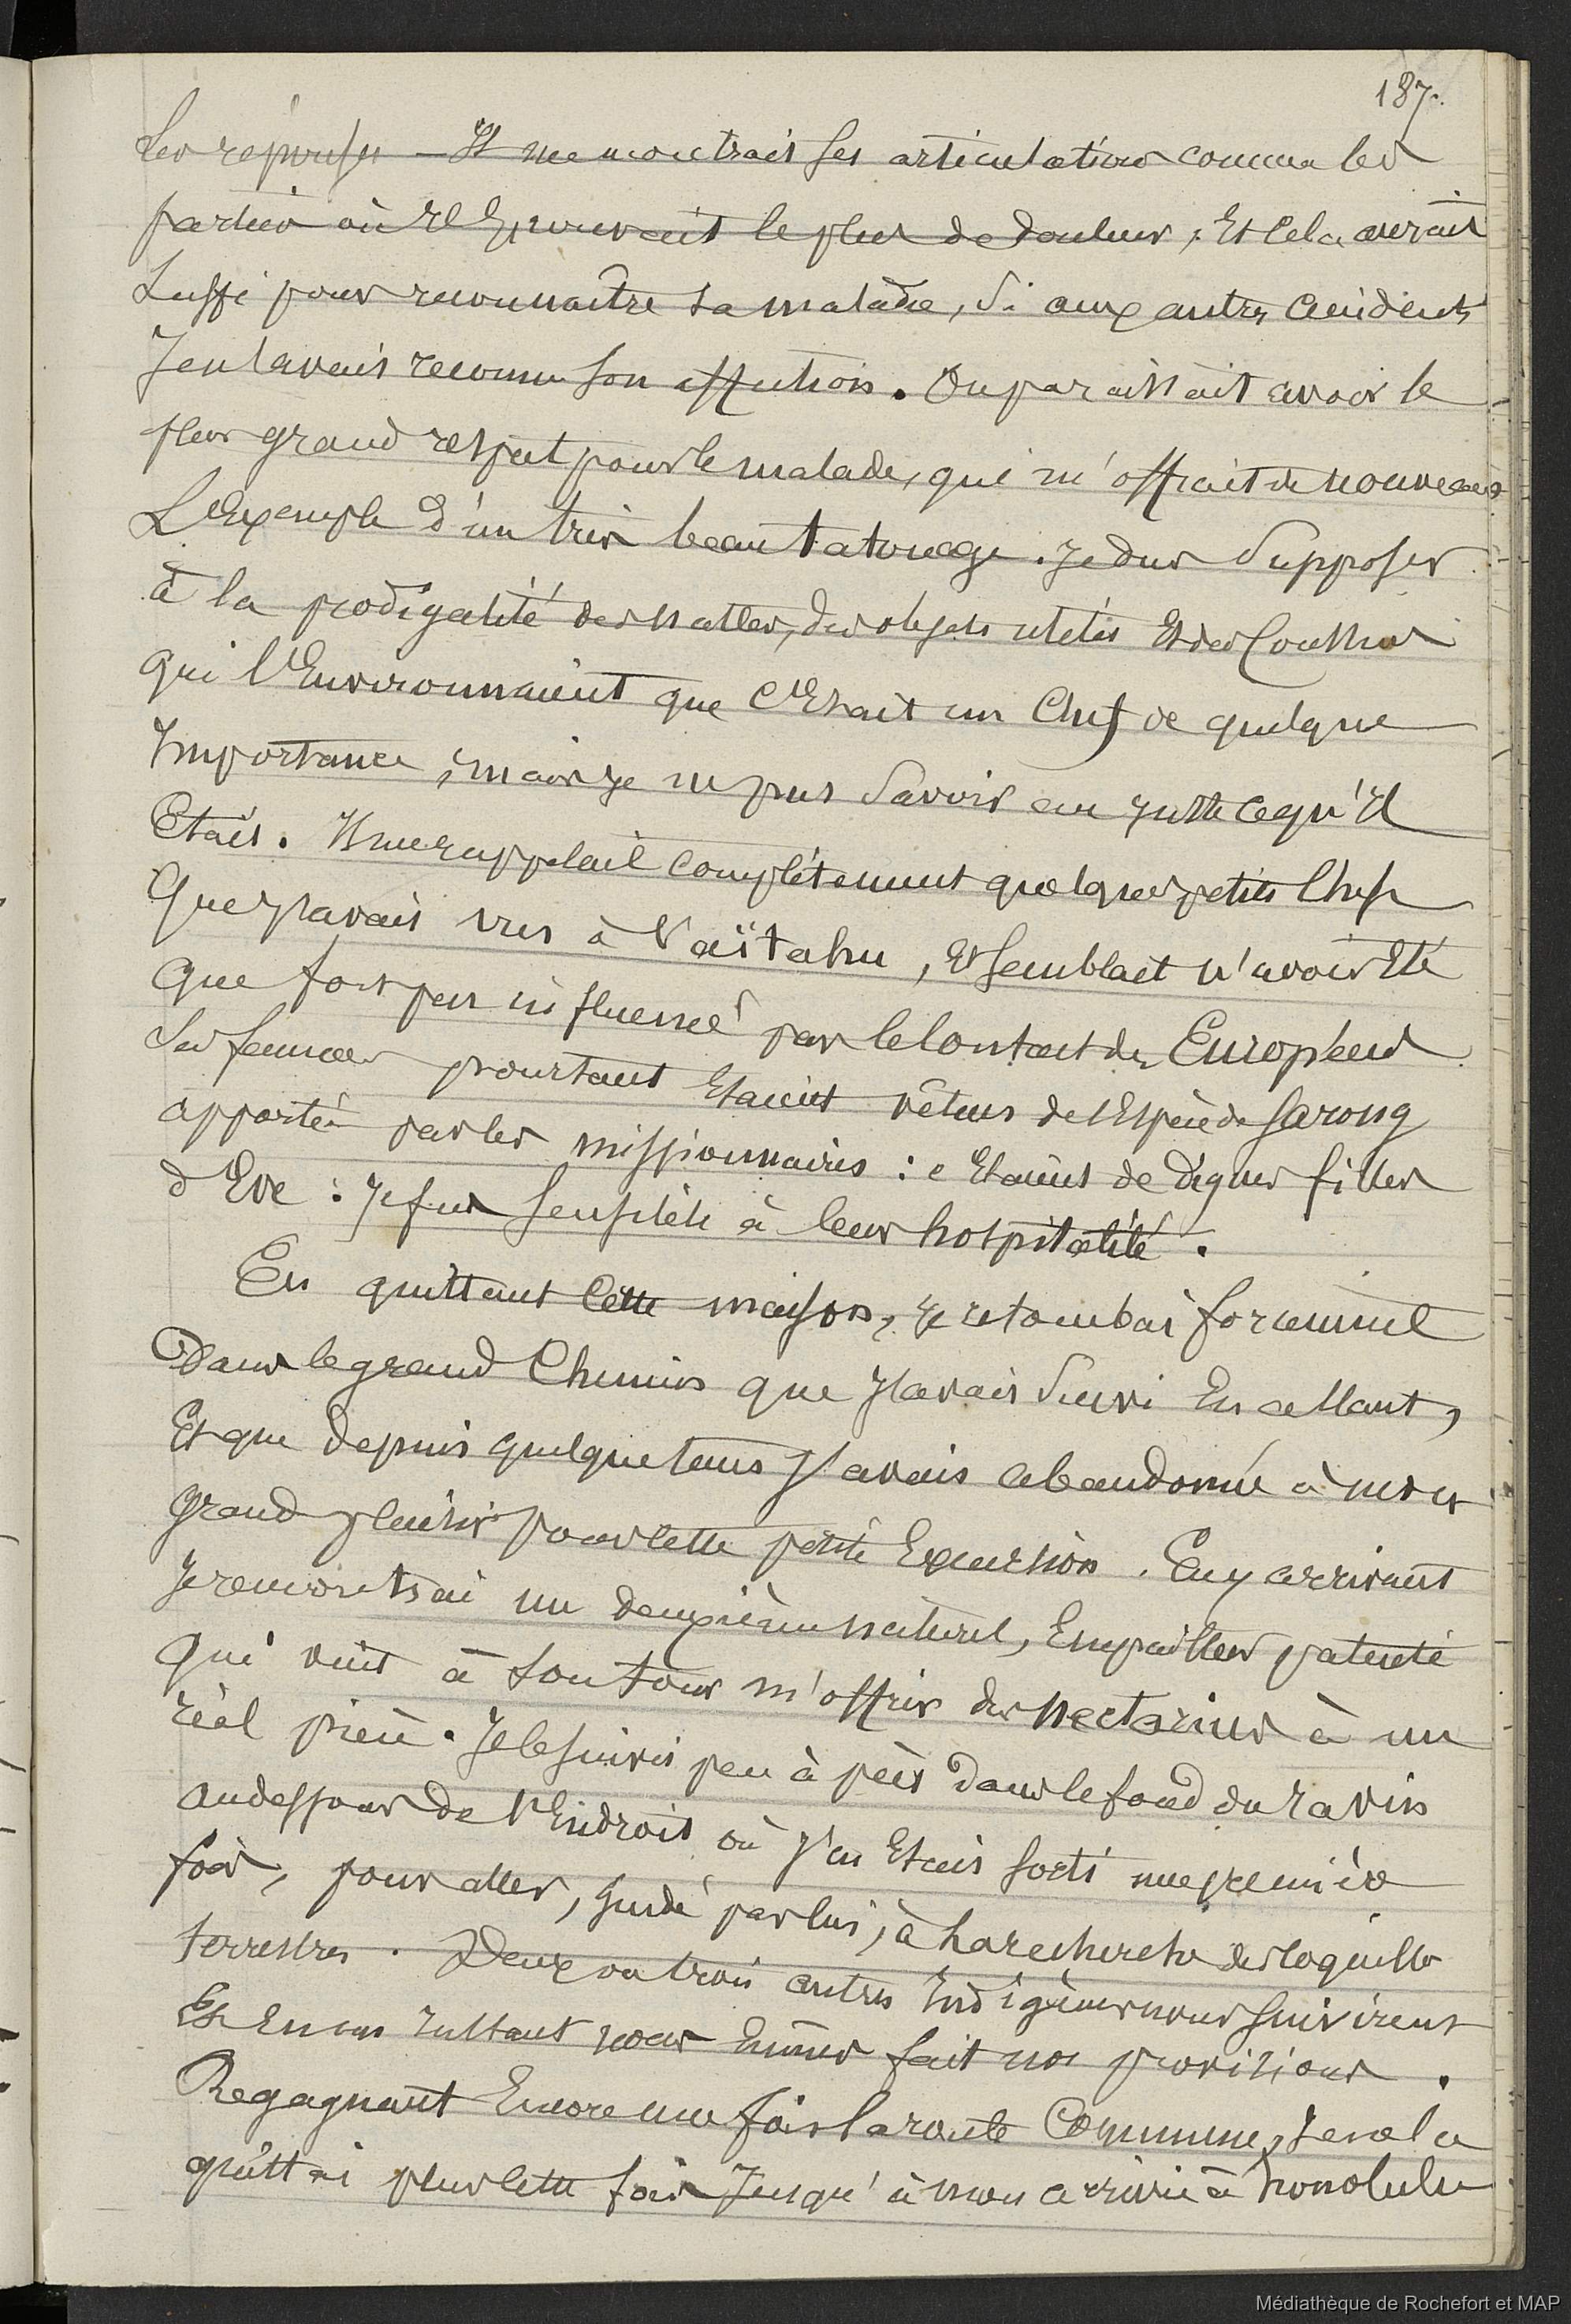 187.
Ses réponses — Il me montrait ses articulations comme les
parties où il Eprouvait le plus de douleur; Et cela aurait
Suffi pour reconnaitre sa maladie, Si aux autres accidents
Je n'avais reconnu son affection. On paraissait avoir le
plus grand respect pour le malade, qui m'offrait de nouveau
L'Exemple d'un très beau tatouage. Je dus Supposer
à la prodigalité des nattes, des objets utiles Et des Coussins
qui l'Environnaient que C'Etait un Chef de quelque
Importance, mais je ne pus Savoir au juste ce qu'il
Etait. Il me rappelait complétement quelques petits Chefs
Que j'avais vus à Vaïtahu, Et semblait n'avoir Eté
que fort peu influencé par le Contact des Européens
Les femmes pourtant Etaient vêtues de l'Espèce de sarong
apporté par les missionnaires : c'Etaient de dignes filles
d'Eve : Je fus sensible à leur hospitalité.
En quittant Cette maison, je retombai forcément
Dans le grand Chemin que j'avais Suivi En allant,
Et que depuis quelque tems j'avais abandonné à mon
grand plaisir pour Cette petite Excursion. En y arrivant
Je rencontrai un deuxième naturel, Empailleur patenté
qui vint à son tour m'offrir des nectarius à un
réal pièce. Je le suivis peu à près dans le fond du ravin
audessous de l'Endroit où j'en Etais sorti une première
fois, pour aller, guidé par lui, à la recherche des Coquilles
terrestres. Deux ou trois autres Indigènes nous suivirent
Et En un Instant nous Eûmes fait nos provisions.
Regagnant Encore une fois la route Commune, Je ne la
quittai plus Cette fois Jusqu'à mon arrivée à honolulu
Médiathèque de Rochefort et MAP